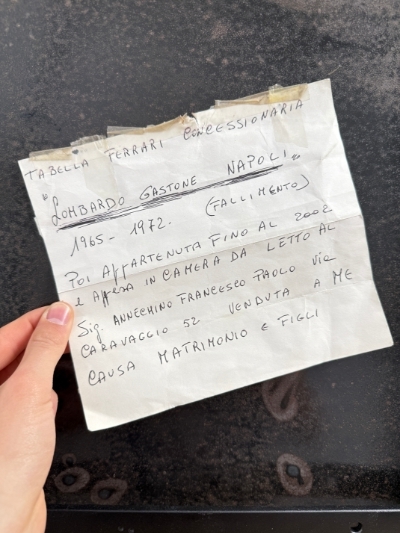 TABELLA FERRARI CONCESSIONARIA
"LOMBARDO GASTONE NAPOLI"
1965 - 1972. (FALLIMENTO)
POI APPARTENUTA FINO AL 2002
E APPESA IN CAMERA DA LETTO AL
Sig. ANNECHINO FRANCESCO PAOLO VIA
CARAVAGGIO 52 VENDUTA A ME
CAUSA MATRIMONIO E FIGLI